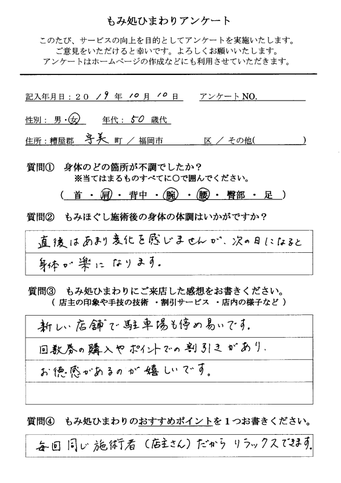 もみ処ひまわりアンケート
このたび、サービスの向上を目的としてアンケートを実施いたします。
ご意見をいただけると幸いです。よろしくお願いいたします。
アンケートはホームページの作成などにも利用させていただきます。
記入年月日：２０１９年 １０月 １０日 アンケートNO.
性別：男・女 年代：５０歳代
住所：糟屋郡 宇美 町 ／ 福岡市 区 ／ その他( )
質問① 身体のどの箇所が不調でしたか？
※当てはまるものすべてに○で囲んでください。
( 首 ・ 肩 ・ 背中 ・ 腕 ・ 腰 ・ 臀部 ・ 足 )
質問② もみほぐし施術後の身体の体調はいかがですか？
直後はあまり変化を感じませんが、次の日になると
身体が楽になります。
質問③ もみ処ひまわりにご来店した感想をお書きください。
( 店主の印象や手技の技術 ・割引サービス ・店内の様子など )
新しい店舗で駐車場も停め易いです。
回数券の購入やポイントでの割引きがあり、
お徳感があるのが嬉しいです。
質問④ もみ処ひまわりのおすすめポイントを１つお書きください。
毎回同じ施術者（店主さん）だからリラックスできます。